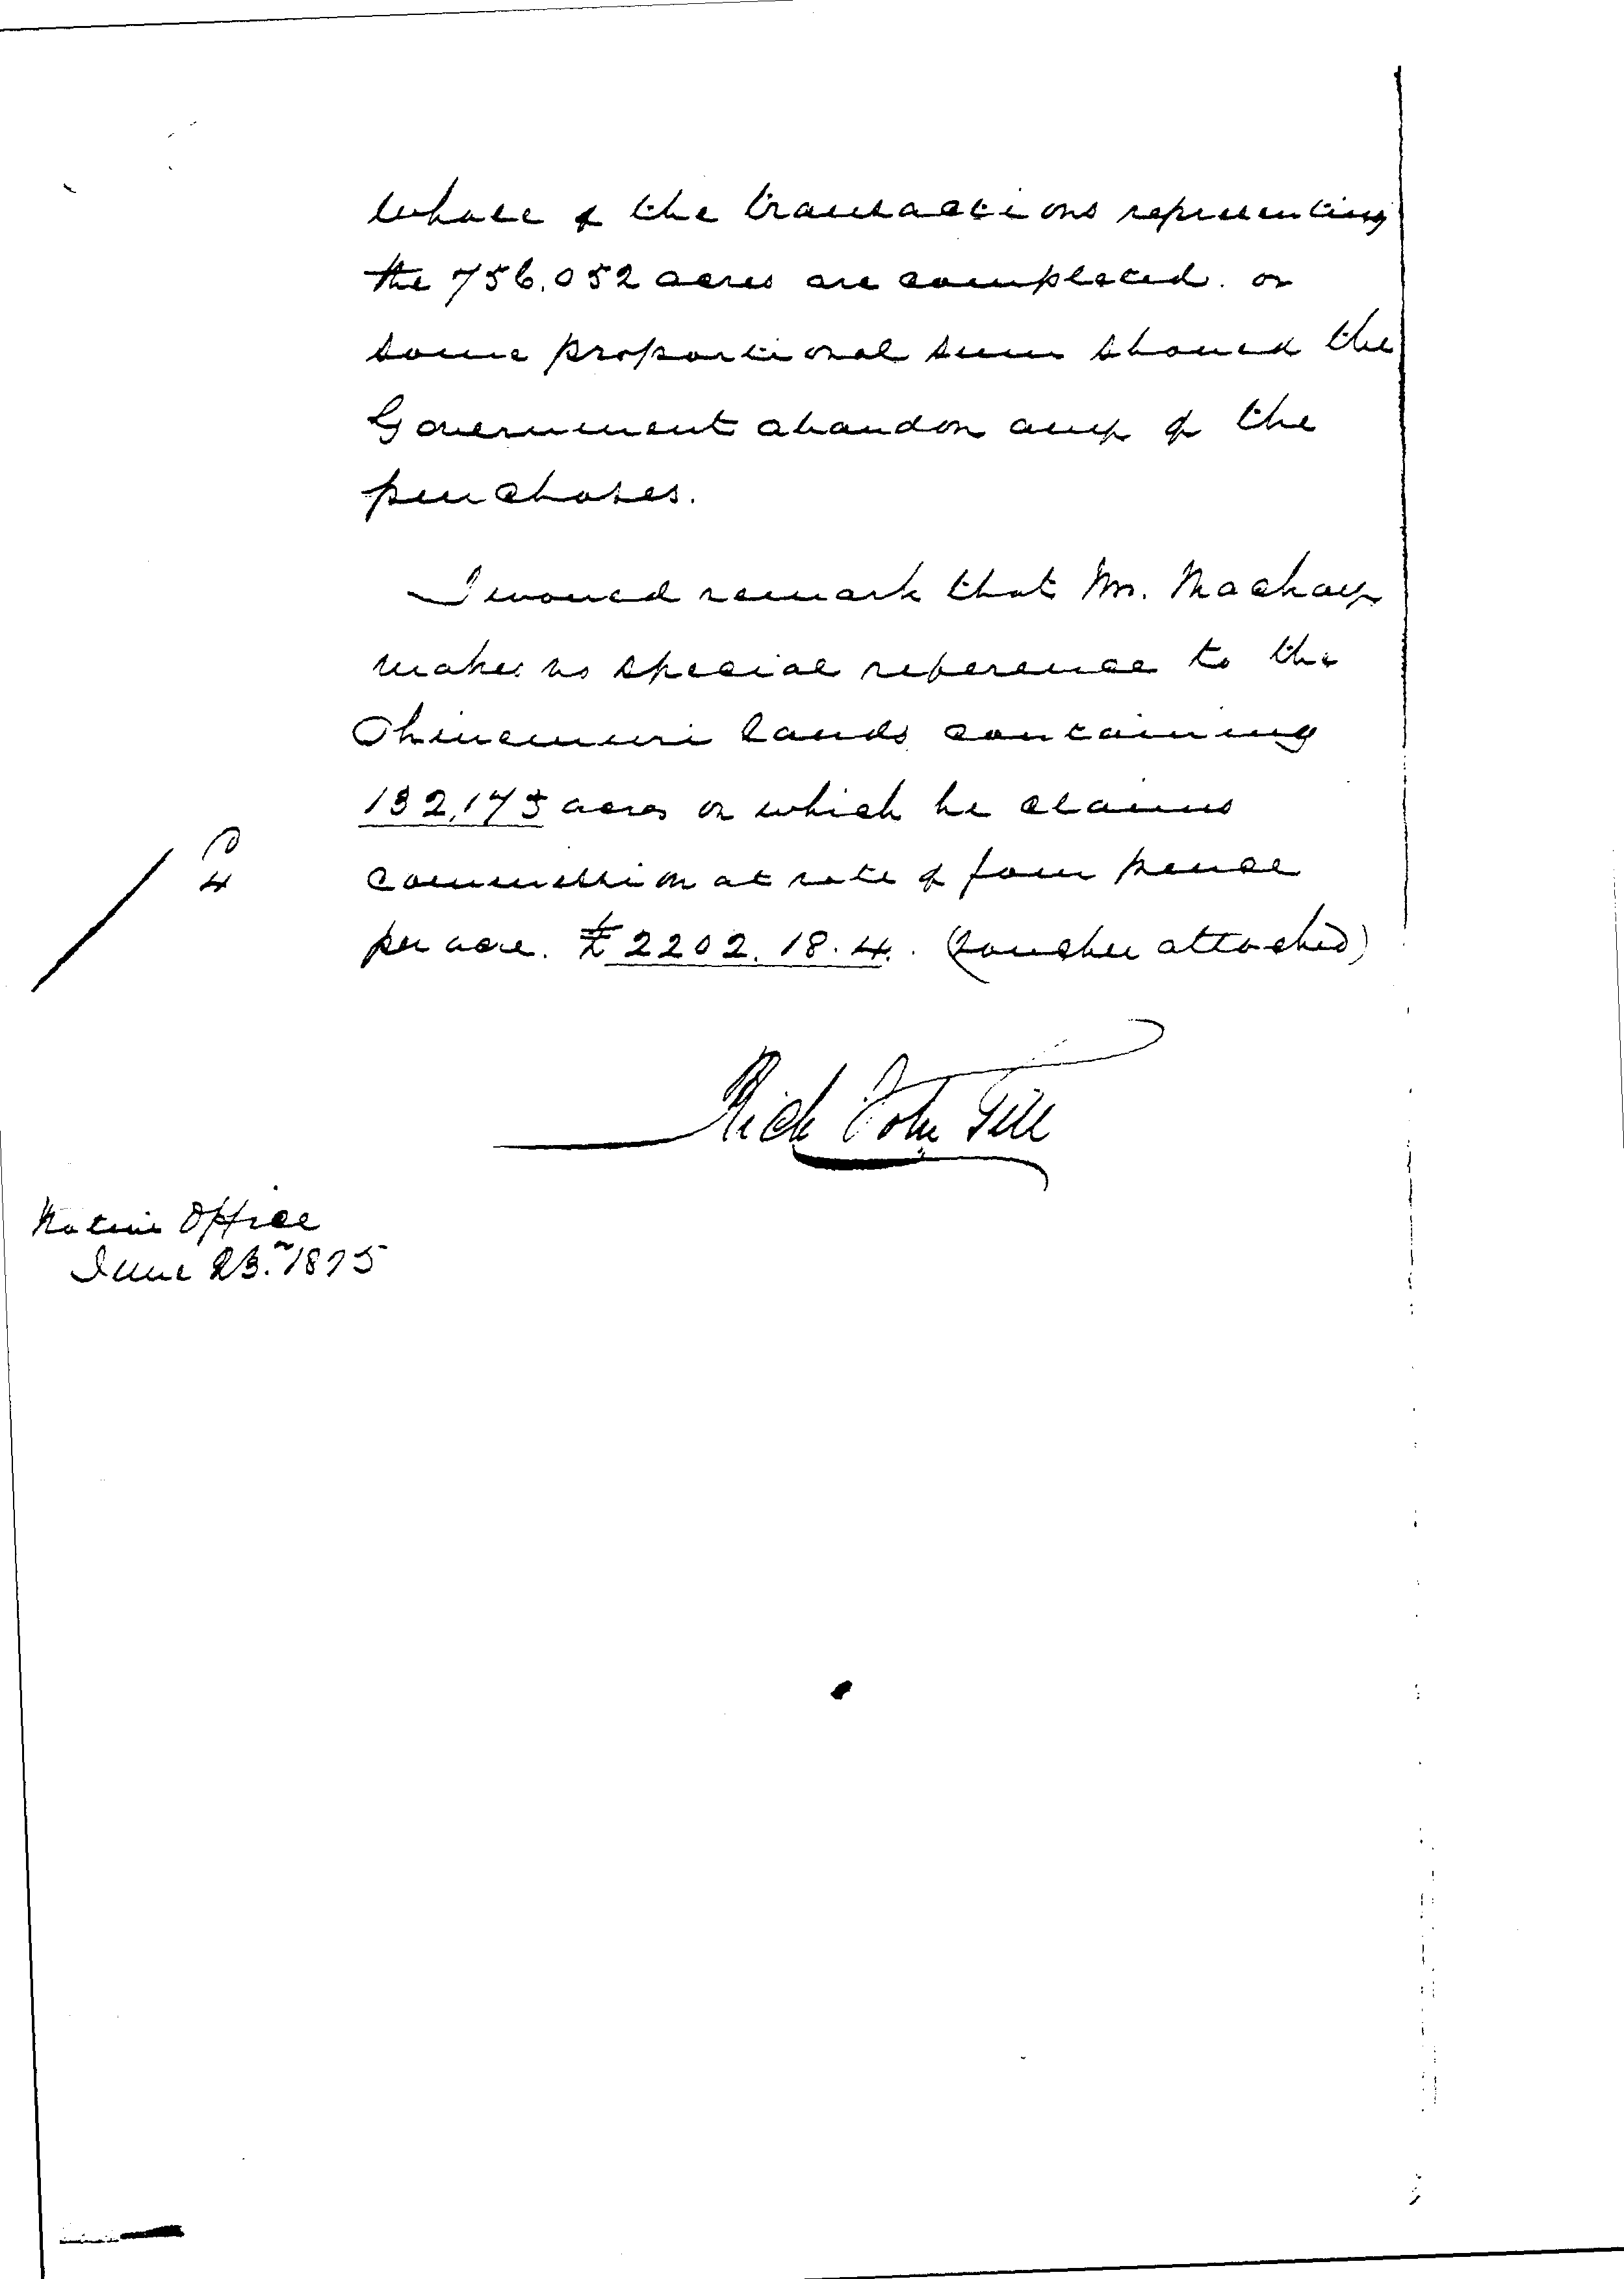 whole of the transactions representing
the 756.052 acres are completed. or
some proportional sum should the
Government abandon any of the
purchases.
I would remark that Mr. Mackay
makes no special reference to the
Ohinemuri lands containing
132,175 acres on which he claims
commission at rate of four pence
4
per acre. £2202.18.4. (voucher attached)
Rich John Gill
Native Office
June 23. 1875